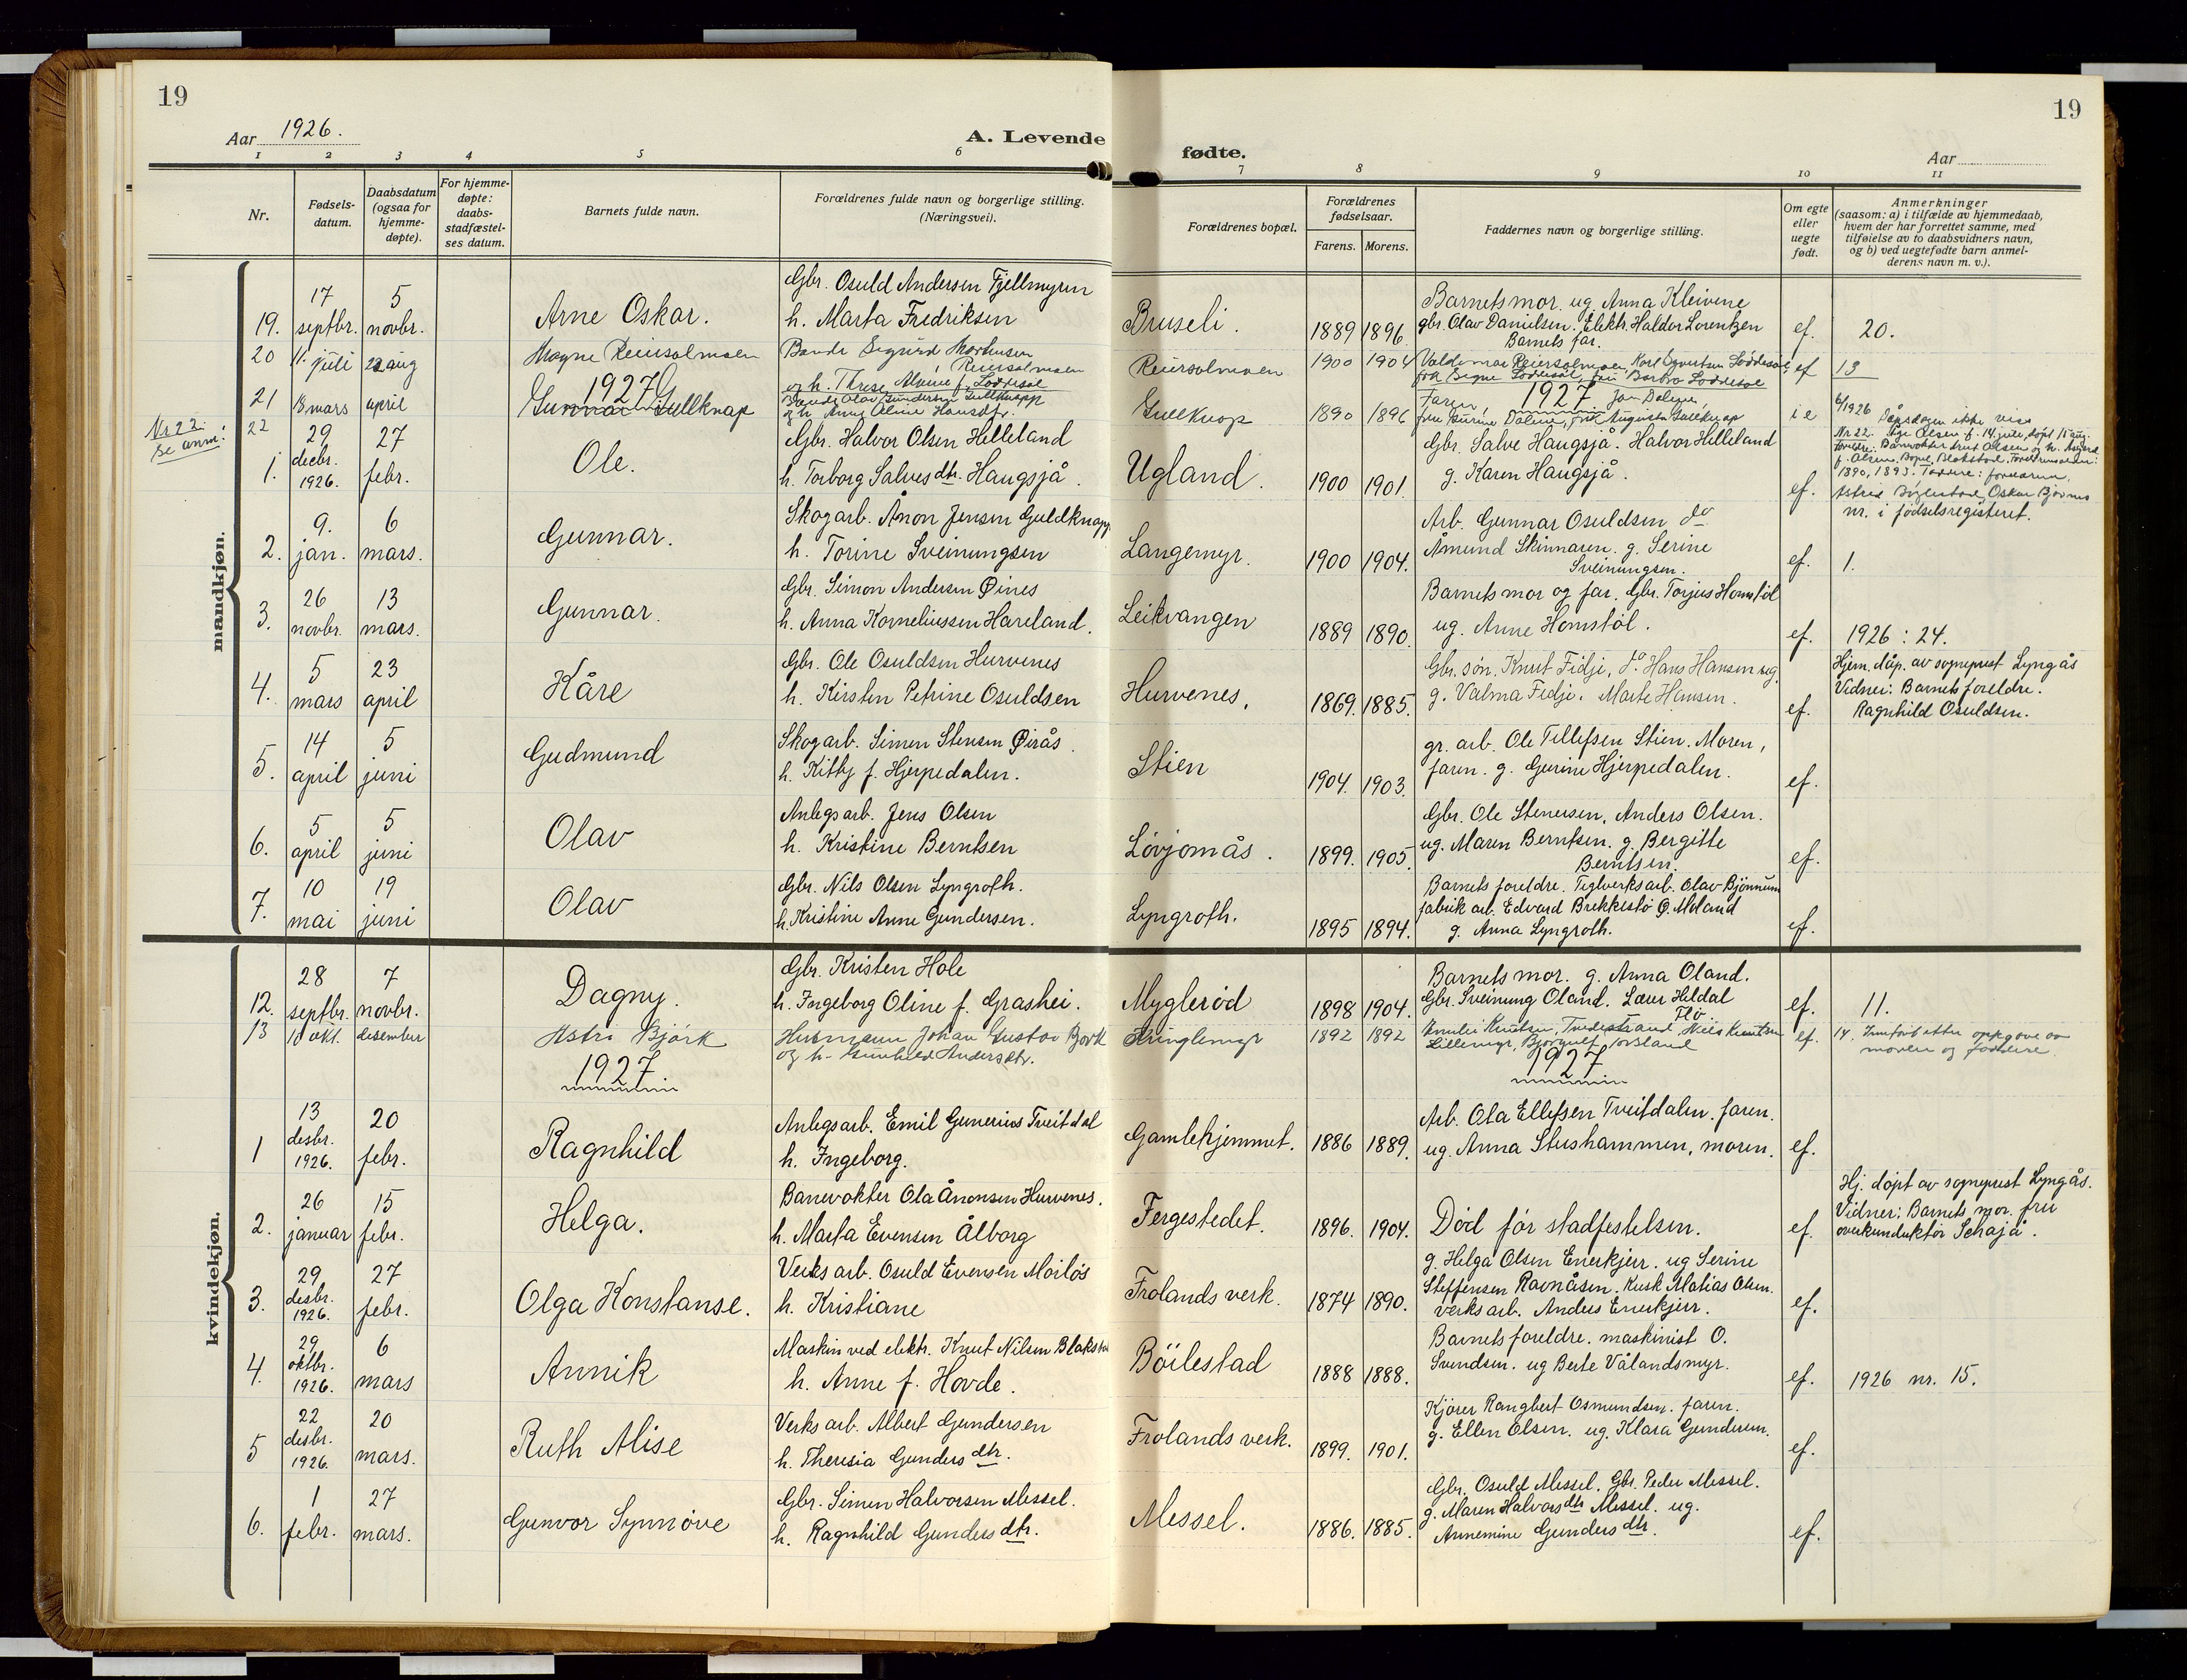 19
Aar 1926.
A. Levende
fødte.
Aar
19
1 2 3 4 5 6 7 8 9 10 11
Nr.
Fødsels-
datum.
Daabsdatum
(ogsaa for
hjemme-
døpte).
For hjemme-
døpte:
daabs-
stadfæstel-
ses datum.
Barnets fulde navn.
Forældrenes fulde navn og borgerlige stilling.
(Næringsvei).
Forældrenes bopæl.
Forældrenes
fødselsaar.
Farens. Morens.
Faddernes navn og borgerlige stilling.
Om egte
eller
uegte
født.
Anmerkninger
(saasom: a) i tilfælde av hjemmedaab,
hvem der har forrettet samme, med
tilføielse av to daabsvidners navn,
og b) ved uegtefødte barn anmel-
derens navn m. v.).
mandkjøn.
19. 17 septbr. 5 novbr. Arne Oskar.
Gbr. Osuld Andersen Fjellmyren
h. Marta Fredriksen
Bruseli. 1889 1896
Barnets mor. ug. Anna Kleivene
gbr. Olav Danielsen. Elektr. Haldor Lorentzen
Barnets far.
ef. 20.
20 11. juli 22 aug Magne Reiersolmoen
Bonde Sigurd Mortensen
Reiersolmoen
og h. Therese Alvine f. Løddesøl
Reiersolmoen 1900 1904
Valdemar Reiersolmoen, Karl Syvertsen Løddesøl,
frk Signe Løddesøl, fru Barbra Løddesøl
ef 13
21 18 mars april Gunnar Gullknap
1927
Bonde Olav Gundersen Gullknapp
og h. Anne Oline Hansdtr.
Gullknap 1890 1896
Faren, Jon Dalene,
fru Gurine Dalene, frk Augusta Gullknap
1927
i e
6/1926 Dåpsdagen ikke viss
Nr 22.
Se anm:
22
Nr 22. Åge Olsen f. 14. juli, døpt 15 aug.
Foreldre: Banevokter Knut Olsen og h. Asgerd
f. Olsen. Bopel Blakstad. Foreldrenes alder:
1890, 1893. Faddere: foreldrene,
Astrid Bøylestad, Oskar Bjørnes
nr. i fødselsregisteret.
1. 29 decbr. 1926. 27 febr. Ole.
Gbr. Halvor Olsen Helleland
h. Torborg Salvesdtr. Haugsjå.
Ugland. 1900 1901.
Gbr. Salve Haugsjå. Halvor Helleland
g. Karen Haugsjå.
ef.
2. 9. jan. 6 mars. Gunnar.
Skogarb. Ånon Jensen Guldknapp
h. Torine Sveinungsen
Langemyr. 1900 1904.
Arb. Gunnar Osuldsen do
Åmund Skinnaren. g. Serine
Sveinungsen.
ef. 1.
3. 26 novbr. 13 mars. Gunnar.
Gbr. Simon Andersen Øines
h. Anna Korneliussen Hareland.
Leikvangen 1889 1890.
Barnets mor og far. Gbr. Torjus Homstöl
ug. Anne Homstöl.
ef. 1926: 24.
4. 5 mars 23 april Kåre
Gbr. Ole Osuldsen Hurvenes
h. Kirsten Petrine Osuldsen
Hurvenes. 1869. 1885.
Gbr. søn. Knut Fidje. do. Hans Hansen ug.
g. Valma Fidje. Marte Hansen.
ef.
Hjem. dåp. av sogneprest Lyngås
Vidner: Barnets foreldre.
Ragnhild Osuldsen.
5. 14 april 5 juni Gudmund
Skogarb. Simen Stensen Øirås.
h. Kitty f. Hjerpedalen.
Stien 1904. 1903.
gr. arb. Ole Tellefsen Stien. Moren,
faren. g. Gurine Hjerpedalen.
ef.
6. 5 april 5 juni Olav
Anlegsarb. Jens Olsen
h. Kristine Berntsen
Løvjomås. 1899. 1905.
Gbr. Ole Stenersen. Anders Olsen.
ug. Maren Berntsen. g. Bergitte
Berntsen.
ef.
7. 10 mai 19 juni Olav
Gbr. Nils Olsen Lyngroth.
h. Kristine Anne Gundersen.
Lyngroth. 1895 1894.
Barnets foreldre. Teglverksarb. Olav Bjönnum
fabrik arb. Edvard Brekkestö Ø. Moland
g. Anna Lyngroth.
ef.
kvindekjøn.
12. 28 septbr. 7 novbr. Dagny.
Gbr. Kristen Hole
h. Ingeborg Oline f. Grashei.
Myglerød 1898 1904.
Barnets mor. g. Anna Oland.
Gbr. Sveinung Oland. Lærer Heldal
Flo.
ef. 11.
13 18 okt. desember Astri Björk
Husmann Johan Gustav Bjork
og h. Gunhild Andersdtr.
Kringlemyr 1892 1892
Emilie Knutsen, Tvedestrand, Niels Knutsen
Lillemyr, Bjorgulf Jorsland
ef.
14. Innført etter oppgave av
moren og faddere.
1927
1927
1 13 desbr. 1926. 20 febr. Ragnhild
Anlegsarb. Emil Gunerius Tveitdal
h. Ingeborg.
Gamlehjemmet. 1886 1889.
Arb. Ola Ellefsen Tveitdalen. faren.
ug. Anna Stushammen, moren.
ef.
2. 26 januar 15 febr. Helga.
Banevokter Ola Ånonsen Hurvenes.
h. Marta Evensen Ålborg
Fergestedet. 1896. 1904.
Död för stadfestelsen.
ef.
Hj. döpt av sogneprest Lyngås.
Vidner: Barnets mor. fru
overkonduktör Schajå.
3. 29 desbr. 1926. 27 febr. Olga Konstanse.
Verksarb. Osuld Evensen Moilös
h. Kristiane
Frolands verk. 1874 1890.
g. Helga Olsen Enerkjerr. ug Serine
Steffensen Ravnåsen. Kusk Matias Olsen.
Verksarb. Anders Enerkjerr.
ef.
4. 29 oktbr. 1926. 6 mars Annik
Maskin ved elektr. Knut Nilsen Blakstad
h. Anne f. Hovde.
Böilestad 1888 1888.
Barnets foreldre. maskinist O.
Svendsen. ug Berte Vålandsmyr.
ef. 1926 nr. 15.
5 22 desbr. 1926. 20 mars. Ruth Alise
Verksarb. Albert Gundersen
h. Theresia Gundersdtr.
Frolands verk. 1899. 1901.
Kjörer Rangbert Osmundsen. faren.
g. Ellen Olsen. ug. Klara Gundersen.
ef.
6. 1 febr. 27 mars. Gunvor Synnøve
Gbr. Simen Halvorsen Messel.
h. Ragnhild Gundersdtr.
Messel. 1886. 1885.
Gbr. Osuld Messel. Gbr. Peder Messel.
g. Maren Halvorsdtr Messel. ug.
Annemine Gundersdtr.
ef.